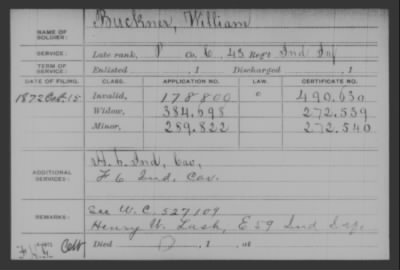 NAME OF SOLDIER: Buckner, William
SERVICE: Late rank, P Co. C, 43 Reg't Ind Inf
TERM OF SERVICE: Enlisted , 1 Discharged , 1
DATE OF FILING. CLASS. APPLICATION NO. LAW. CERTIFICATE NO.
1872 Oct. 15 Invalid, 178800 C 490.630
Widow, 384.698 272.539
Minor, 289.822 272.540
ADDITIONAL SERVICES: Ind. Cav.
F 6 Ind. Cav.
REMARKS: See W. C. 527109
Henry W. Lash, E 59 Ind Inf.
Died , 1 , at